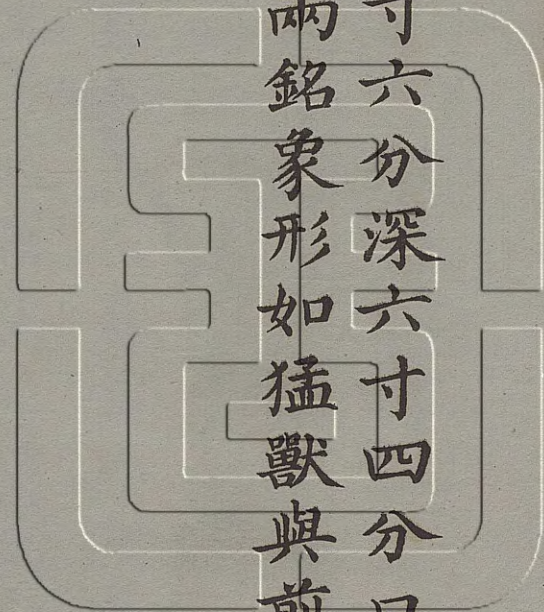 寸六分深六寸四分口
兩銘象形如猛獸與前